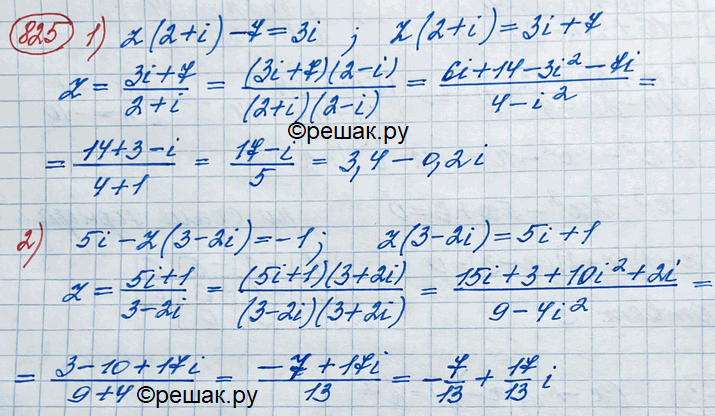 825 1) z(2+i) - 7 = 3i ; z(2+i) = 3i + 7
z = (3i+7)/(2+i) = ((3i+7)(2-i))/((2+i)(2-i)) = (6i+14-3i²-7i)/(4-i²) =
©решак.ру
= (14+3-i)/(4+1) = (17-i)/5 = 3,4 - 0,2i
2) 5i - z(3-2i) = -1 ; z(3-2i) = 5i + 1
z = (5i+1)/(3-2i) = ((5i+1)(3+2i))/((3-2i)(3+2i)) = (15i+3+10i²+2i)/(9-4i²) =
= (3-10+17i)/(9+4) = (-7+17i)/13 = -7/13 + 17/13 i
©решак.ру